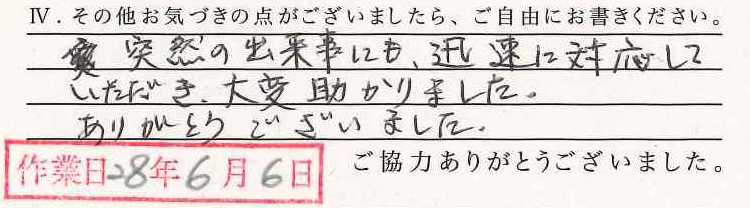 Ⅳ．その他お気づきの点がございましたら、ご自由にお書きください。
突然の出来事にも、迅速に対応して
いただき、大変助かりました。
ありがとうございました。
作業日28年6月6日
ご協力ありがとうございました。